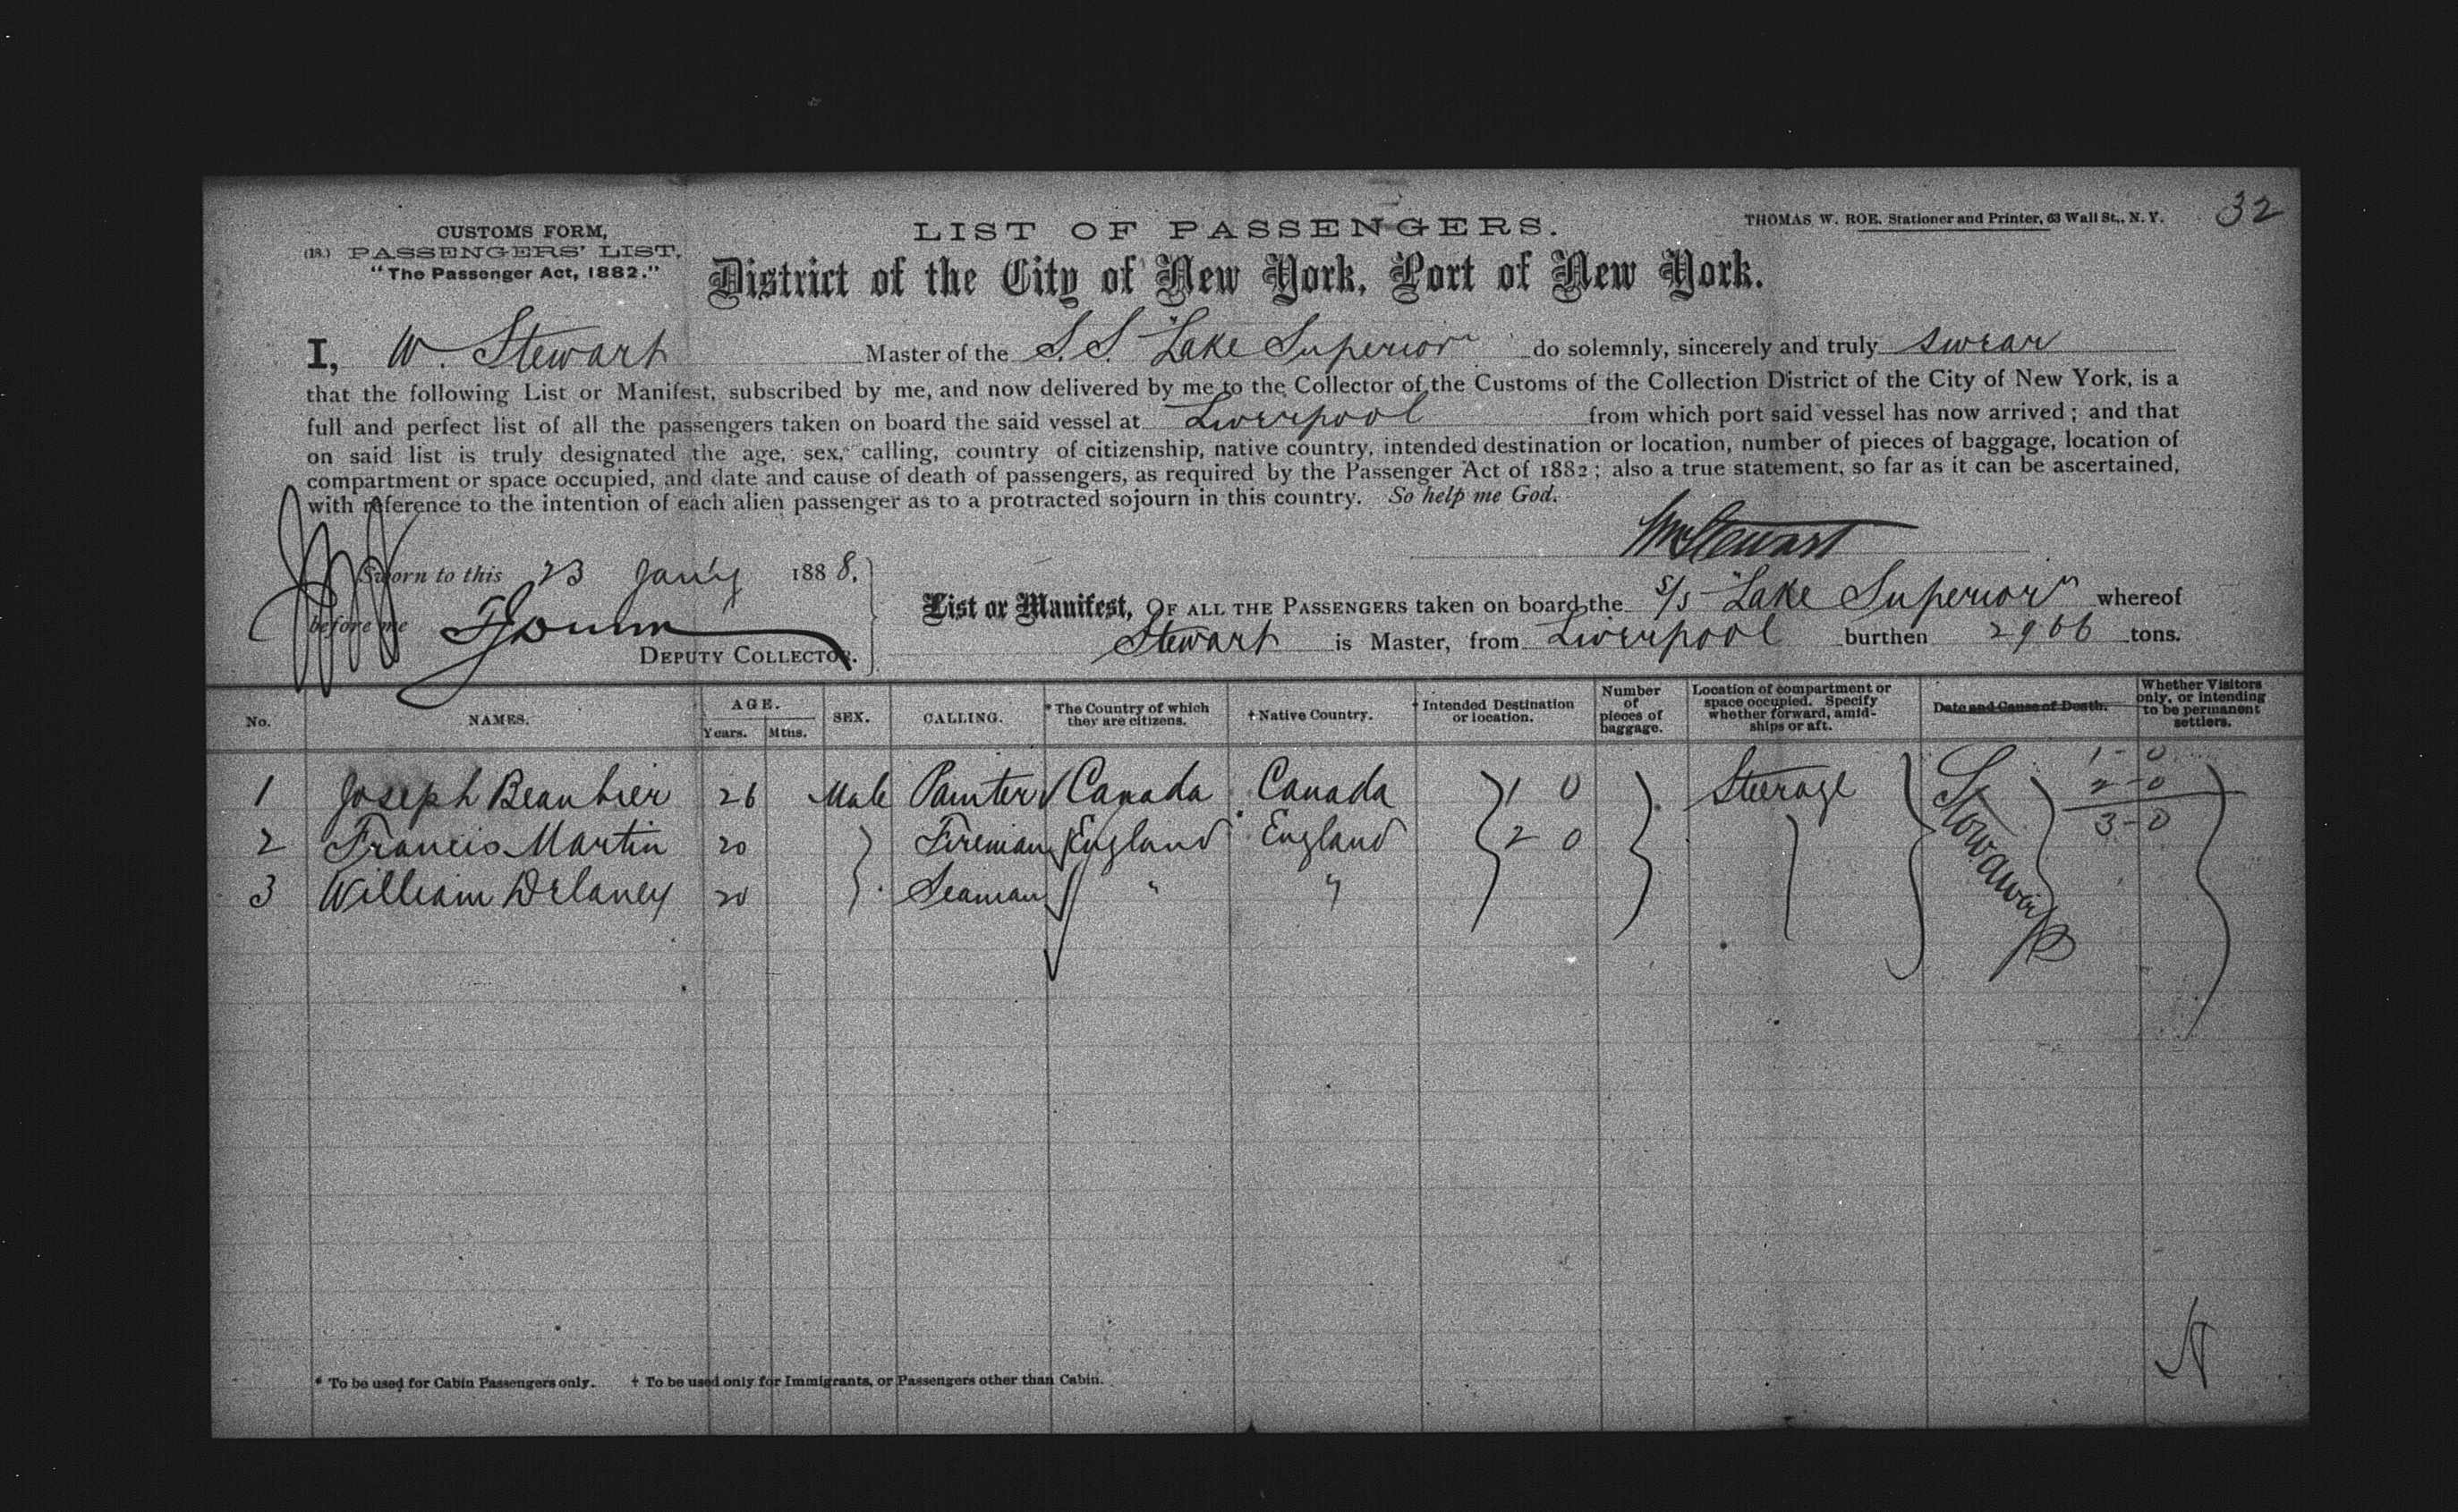 32
CUSTOMS FORM,
(18.) PASSENGERS' LIST,
"The Passenger Act, 1882."
LIST OF PASSENGERS.
THOMAS W. ROE, Stationer and Printer, 63 Wall St., N. Y.
District of the City of New York, Port of New York.
I, W. Stewart Master of the S.S. "Lake Superior" do solemnly, sincerely and truly swear
that the following List or Manifest, subscribed by me, and now delivered by me to the Collector of the Customs of the Collection District of the City of New York, is a
full and perfect list of all the passengers taken on board the said vessel at Liverpool from which port said vessel has now arrived; and that
on said list is truly designated the age, sex, calling, country of citizenship, native country, intended destination or location, number of pieces of baggage, location of
compartment or space occupied, and date and cause of death of passengers, as required by the Passenger Act of 1882; also a true statement, so far as it can be ascertained,
with reference to the intention of each alien passenger as to a protracted sojourn in this country. So help me God.
Wm Stewart
Sworn to this 23 Jany 1888.
before me
DEPUTY COLLECTOR.
List or Manifest, OF ALL THE PASSENGERS taken on board the S/S "Lake Superior" whereof
Stewart is Master, from Liverpool burthen tons.
No. NAMES. AGE. Years. Mths. SEX. CALLING. * The Country of which they are citizens. † Native Country. † Intended Destination or location. Number of pieces of baggage. Location of compartment or space occupied. Specify whether forward, amidships or aft. Date and Cause of Death. Whether Visitors only, or intending to be permanent settlers.
1 Joseph Beaubier 26 Male Painter Canada Canada 1 0 Steerage Stowaways 1-0
2 Francis Martin 20 Fireman England England 2 0 2-0
3-0
3 William Delaney 20 Seaman " "
* To be used for Cabin Passengers only. † To be used only for Immigrants, or Passengers other than Cabin.